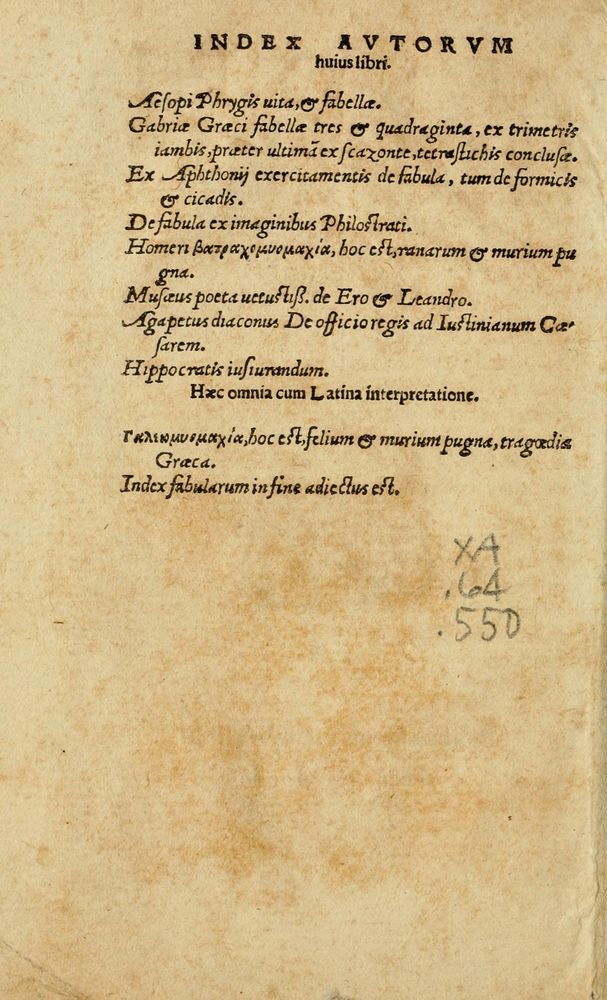 INDEX AVTORVM
huius libri.
Aesopi Phrygis uita, & fabellæ.
Gabriæ Græci fabellæ tres & quadraginta, ex trimetris
iambis, præter ultimā ex scazonte, tetrastichis conclusæ.
Ex Aphthonij exercitamentis de fabula, tum de formicis
& cicadis.
De fabula ex imaginibus Philostrati.
Homeri βατραχομυομαχία, hoc est, ranarum & murium pu
gna.
Musæus poeta uetustiß. de Ero & Leandro.
Agapetus diaconus De officio regis ad Iustinianum Cæ-
sarem.
Hippocratis iusiurandum.
Hæc omnia cum Latina interpretatione.
Γαλεωμυομαχία, hoc est, felium & murium pugna, tragœdia
Græca.
Index fabularum in fine adiectus est.
XA
.64
.550